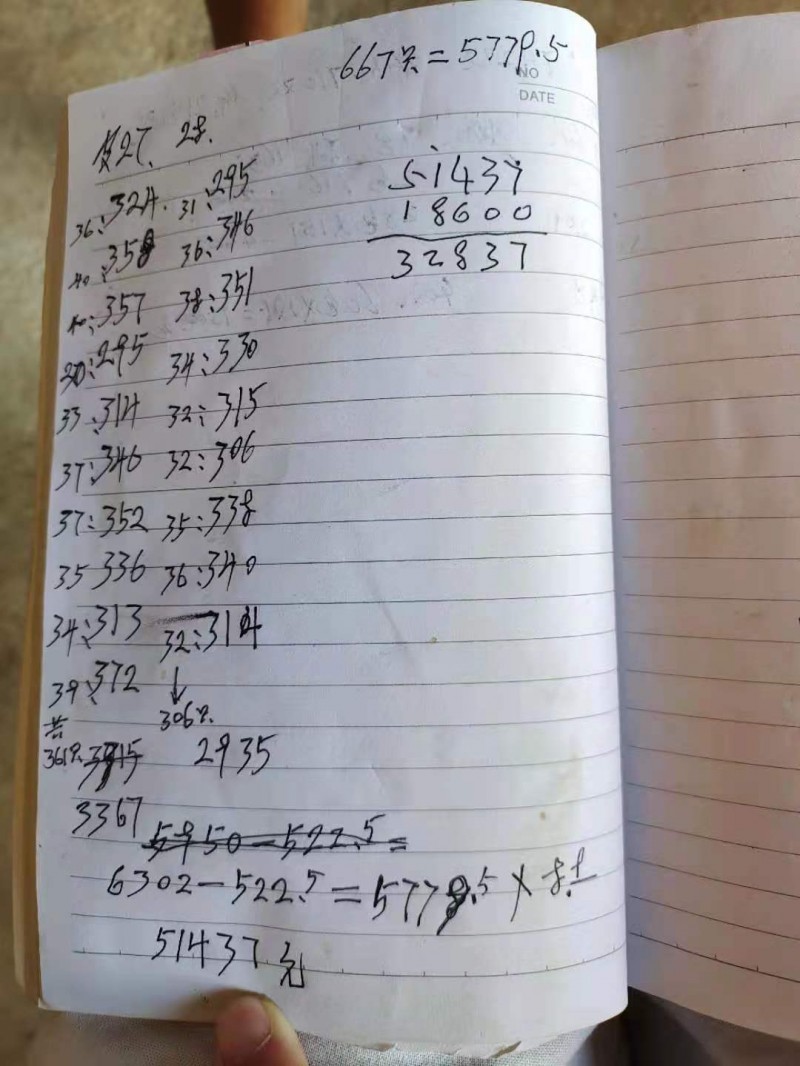 667只=5779.5
NO
DATE
36:324. 31:295
40:358 36:346
40:357 38:351
30:295 34:330
33:314 32:315
37:346 32:306
37:352 35:338
35 336 36:340
34:313 32:314
39:372 ↓
共 306只.
361只. 2935
3367
5950-522.5=
6302-522.5=5779.5×8.9
51437元
51437
18600
32837